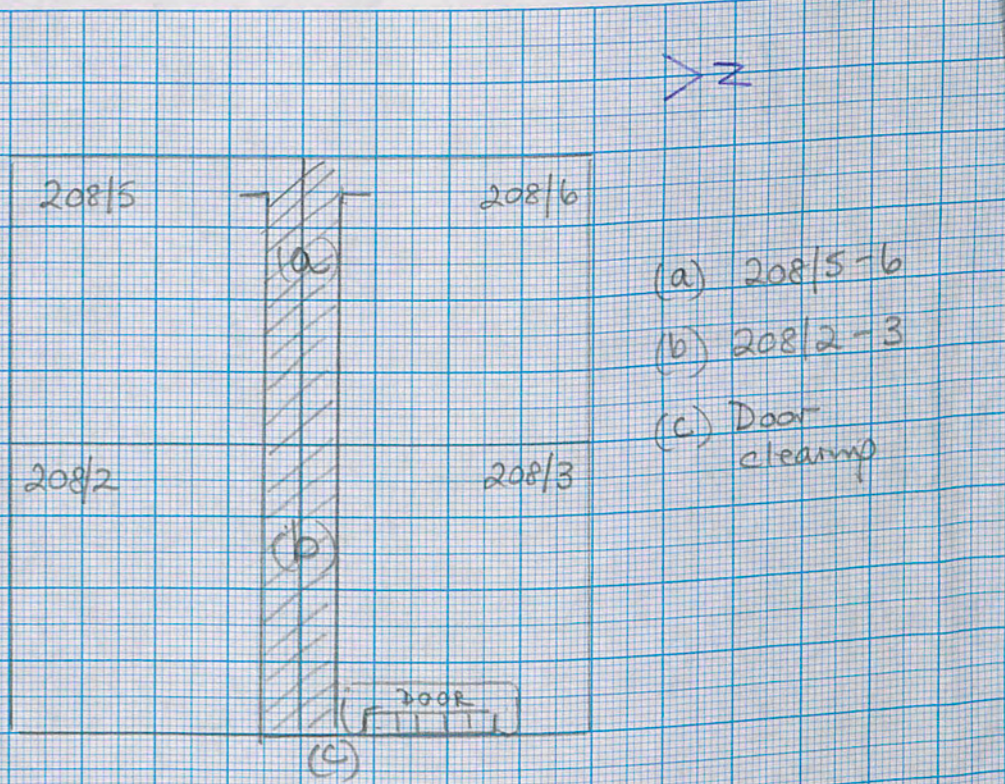 > Z
208/5
208/6
(a)
(a) 208/5-6
(b) 208/2-3
(c) Door
clearing
208/2
208/3
(b)
DOOR
(c)